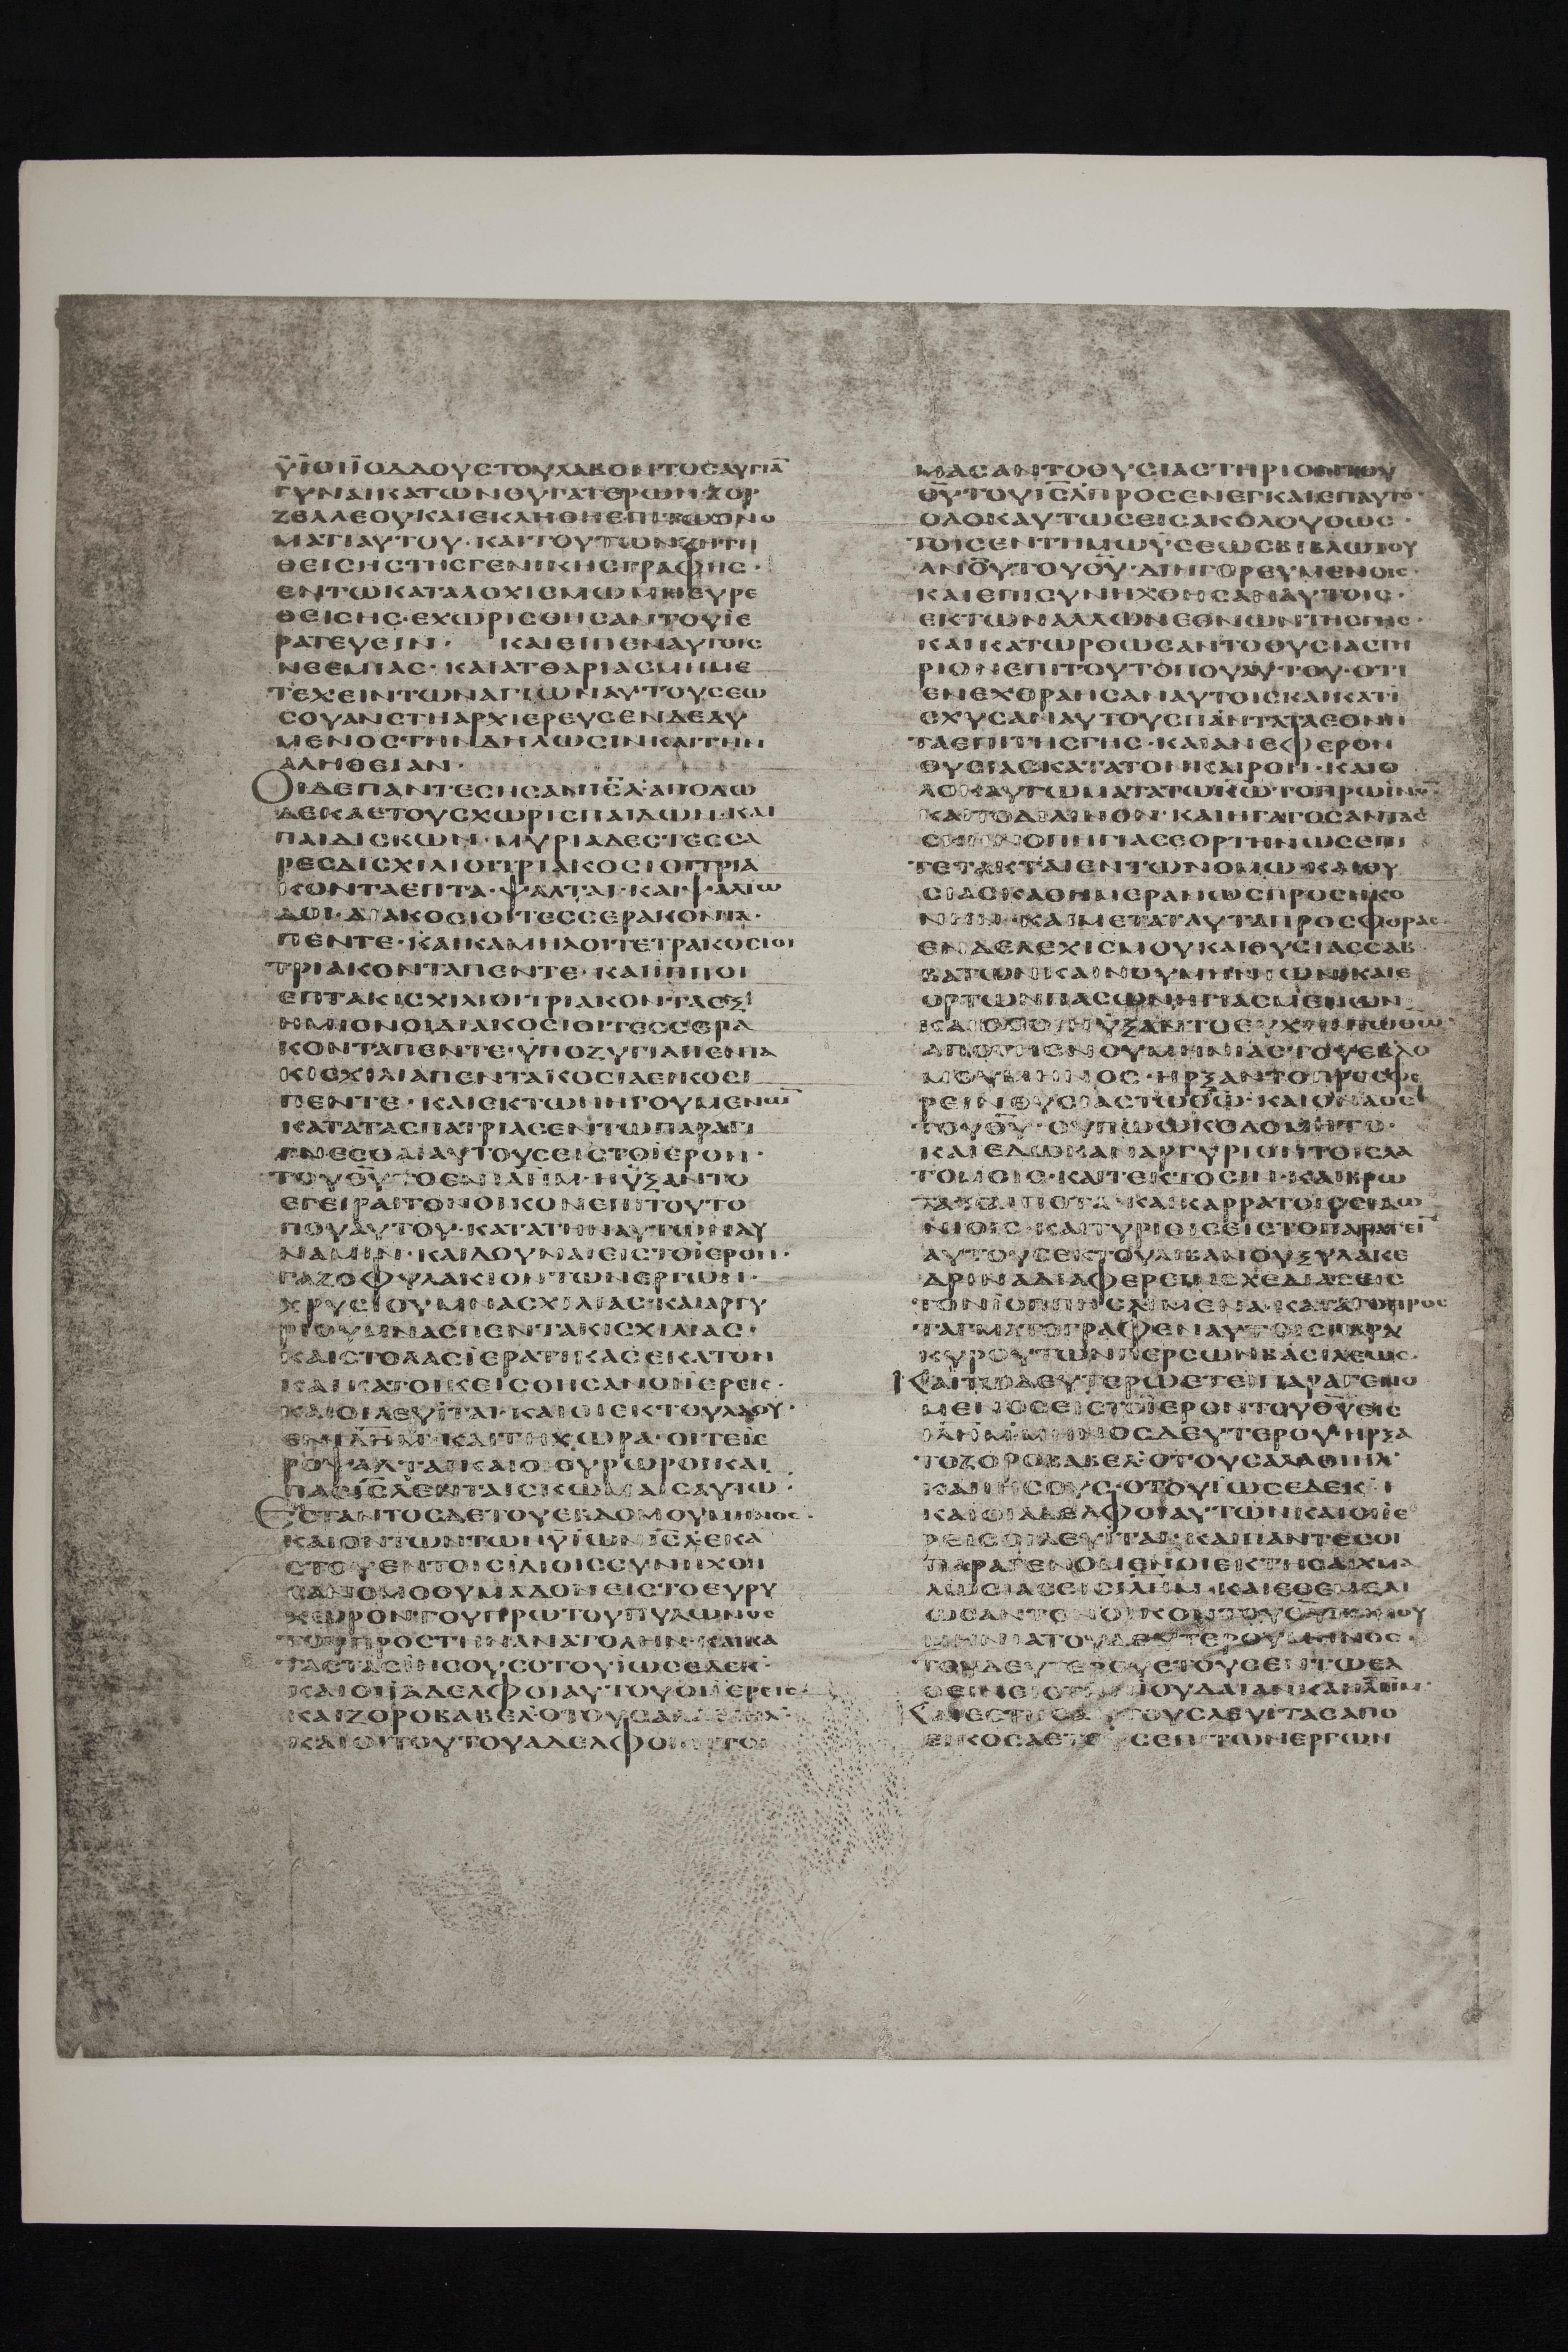 ϋϊοιϊοδδουςτουλαβοντοςαυγιᾱ
γυναικατωνθυγατερωνφαρ
ζεαλεουκαιεκληθηεπιτωονο
ματιαυτου·καιτουτωνζητη
θεισηςτηςγενικηςγραφης·
εντωκαταλοχισμωμηευρε
θεισης·εχωρισθησαντουϊε
ρατευειν· καιειπεναυτοις
νεεμιας·καιατθαριασμημε
τεχειντωναγιωναυτουςεω
σουανστηαρχιερευςενδεδυ
μενοςτηνδηλωσινκαιτην
αληθειαν·
Οιδεπαντεςησανιη̅λ·αποδω
δεκαετουςχωριςπαιδων·και
παιδισκων·μυριαδεςτεσσα
ρεςδισχιλιοιτριακοσιοιτρια
κονταεπτα·ψαλται·καιψαλτω
δοι·διακοσιοιτεσσερακοντα·
πεντε·καικαμηλοιτετρακοσιοι
τριακονταπεντε·καιϊπποι
επτακισχιλιοιτριακονταεξ
ημιονοιδιακοσιοιτεσσερα
κονταπεντε·ϋποζυγιαπεντα
κισχιλιαπεντακοσιαεικοσι
πεντε·καιεκτωνηγουμενω̅
κατατασπατριαςεντωπαραγι
γνεσθαιαυτουςειςτοϊερον·
τουθ̅υ̅τοενιλ̅η̅μ̅·ηϋξαντο
εγειραιτονοικονεπιτουτο
πουαυτου·κατατηναυτωνδυ
ναμιν·καιδουναιειςτοϊερον·
γαζοφυλακιοντωνεργων·
χρυσιουμναςχιλιας·καιαργυ
ριουμναςπεντακισχιλιας·
καιστολαςϊερατικαςεκατον
καικατοικεισθησανοιϊερεις·
καιοιλευϊται·καιοιεκτουλαου·
ενιλ̅η̅μ̅·καιτηχωρα·οιτεϊε
ροψαλταικαιοιθυρωροικαι
πασι̅η̅λ̅ενταιςκωμαιςαυτω̅·
Ενσταντοςδετουεβδομουμηνος·
καιοντωντωνϋϊωνι̅η̅λ̅εκα
στουεντοιςϊδιοιςσυνηχθη
σανομοθυμαδονειςτοευρυ
χωροντουπρωτουπυλωνος
τουπροςτηνανατολην·καικα
ταστασϊησουςοτουϊωσεδεκ·
καιοιαδελφοιαυτουοιϊερεις·
καιζοροβαβελοτουσαλαθιηλ·
καιοιτουτουαδελφοιητοι
μασαντοθυσιαστηριοντου
θ̅υ̅τουι̅η̅λ̅προσενεγκαιεπαυτο·
ολοκαυτωσειςακολουθως·
τοιςεντημωϋσεωςβιβλωτου
αν̅ο̅υ̅τουθ̅υ̅·διηγορευμενοις·
καιεπισυνηχθησαναυτοις·
εκτωναλλωνεθνωντηςγης·
καικατωρθωσαντοθυσιαστη
ριονεπιτουτοπουαυτου·οτι
ενεχθραησαναυτοιςκαικατι
σχυσαναυτουςπανταταεθνη
ταεπιτηςγης·καιανεφερον
θυσιαςκατατονκαιρον·καιο
λοκαυτωματατωκ̅ω̅τοπρωϊνο̅·
καιτοδιλινον·καιηγαγοσαντας
σκηνοπηγιαςεορτηνωςεπι
τετακταιεντωνομωκαιθυ
σιαςκαθημερανωςπροσηκο
νην·καιμεταταυταπροσφορας
ενδελεχισμουκαιθυσιαςσαβ
βατωνκαινουμηνιωνκαιε
ορτωνπασωνηγιασμενων
καιοσοιηϋξαντοευχηντωθ̅ω̅·
αποτηςνουμηνιας·τουεβδο
μουμηνος·ηρξαντοπροσφε
ρεινθυσιαςτωθ̅ω̅·καιοναοςt
τουθ̅υ̅·ουπωωκοδομητο·
καιεδωκαναργυριοντοιςλα
τομοις·καιτεκτοσιν·καιβρω
ταικαιποτα·καικαρρατοιςσιδω
νιοις·καιτυριοιςειςτοπαραγει̅
αυτουςεκτουλιβανουξυλακε
δριναδιαφερεινσχεδιαςεις
τονϊοππηςλιμενα·κατατοπρος
ταγματογραφεναυτοιςπαρα
κυρουτωνπερσωνβασιλεως·
Καιτωδευτερωετειπαραγενο
μενοςειςτοϊεροντουθ̅υ̅εις
ιλ̅η̅μ̅·μηνοςδευτερου·ηρξα
τοζοροβαβελ·οτουσαλαθιηλ·
καιιησους·οτουϊωσεδεκ·
καιοιαδελφοιαυτωνκαιοιϊε
ρειςοιλευϊται·καιπαντεςοι
παραγενομενοιεκτηςαιχμα
λωσιαςειςιλ̅η̅μ̅·καιεθεμελι
ωσαντονοικοντουθ̅υ̅τηνου
μηνιατουδευτερουμηνος·
τουδευτερουετουςεντωελ
θεινειςτηνιουδαιανκαιιλ̅η̅μ̅·
Καιεστησαντουςλευϊταςαπο
εικοσαετουςεπιτωνεργων